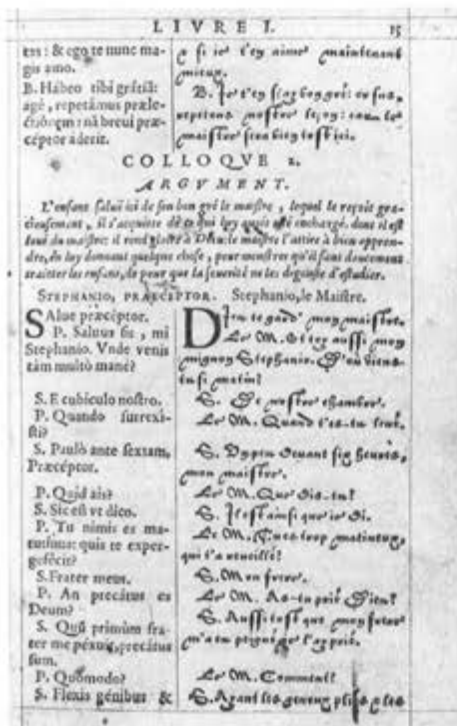 LIVRE I. 15
tem : & ego te nunc ma-
gis amo.
B. Hábeo tibi grátiã:
agè, repetámus præle-
ctiónem : nã brevi præ-
céptor áderit.
& si ie t'ey aime maintenant
mieux.
B. Ie t'ey sçay bon gré: or sus,
repetons nostre leçon: car le
maistre sera bien tost ici.
COLLOQVE 2.
ARGVMENT.
L'enfant saluë ici de son bon gré le maistre, lequel le reçoit gra-
cieusement, il s'acquiete de ce qui luy avoit esté enchargé. donc il est
loué du maistre: il rend gloire à Dieu: le maistre l'attire à bien appren-
dre, en luy donnant quelque chose, pour monstrer qu'il faut doucement
traitter les enfans, de peur que la severité ne les degouste d'estudier.
STEPHANIO, PRÆCEPTOR.
SAlue præcéptor.
P. Saluus sis, mi
Stephanio. Vnde venis
tàm multò manè?
S. E cubículo nostro.
P. Quando surrexí-
sti?
S. Paulò ante sextam,
Præcéptor.
P. Quid ais?
S. Sic est vt dico.
P. Tu nimis es ma-
tutínus: quis te exper-
gefécit?
S. Frater meus.
P. An precátus es
Deum?
S. Quũ primùm fra-
ter me péxuit, precátus
sum.
P. Quómodo?
S. Flexis génibus &
Stephanio, le Maistre.
Dieu te gard' mon maistre.
Le M. Et toy aussi mon
mignon Stephanio. D'où viens-
tu si matin?
S. De nostre chambre.
Le M. Quand t'es-tu levé?
S. Vn peu devant six heures,
mon maistre.
Le M. Que dis-tu?
S. Il est ainsi que ie di.
Le M. Tu es trop matineux,
qui t'a reveillé?
S. Mon frere.
Le M. As-tu prié Dieu?
S. Aussi tost que mon frere
m'a eu peigné ie l'ay prié.
Le M. Comment?
S. Ayant les genoux pliés & les